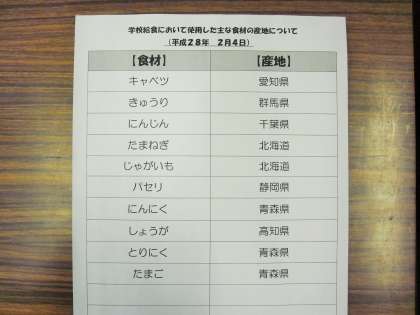 学校給食において使用した主な食材の産地について
(平成28年 2月4日)
【食材】 【産地】
キャベツ 愛知県
きゅうり 群馬県
にんじん 千葉県
たまねぎ 北海道
じゃがいも 北海道
パセリ 静岡県
にんにく 青森県
しょうが 高知県
とりにく 青森県
たまご 青森県